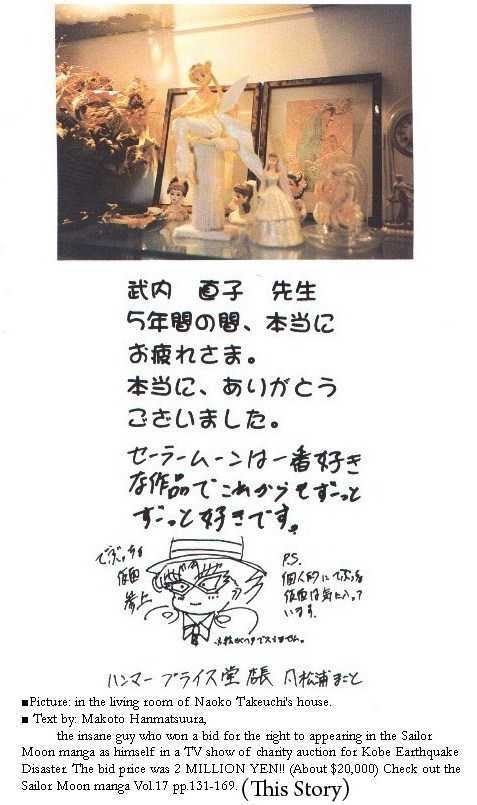 武内 直子 先生
5年間の間、本当に
お疲れさま。
本当に、ありがとう
ございました。
セーラームーンは一番好き
な作品でこれからもずーっと
ずーっと好きです。
仮面
参上
P.S.
個人的に
仮面は気に入って
います。
ハンマー プライス堂 店長 松浦まこと
■Picture: in the living room of Naoko Takeuchi's house.
■ Text by: Makoto Hanmatsuura,
the insane guy who won a bid for the right to appearing in the Sailor
Moon manga as himself in a TV show of charity auction for Kobe Earthquake
Disaster. The bid price was 2 MILLION YEN!! (About $20,000) Check out the
Sailor Moon manga Vol.17 pp.131-169. (This Story)